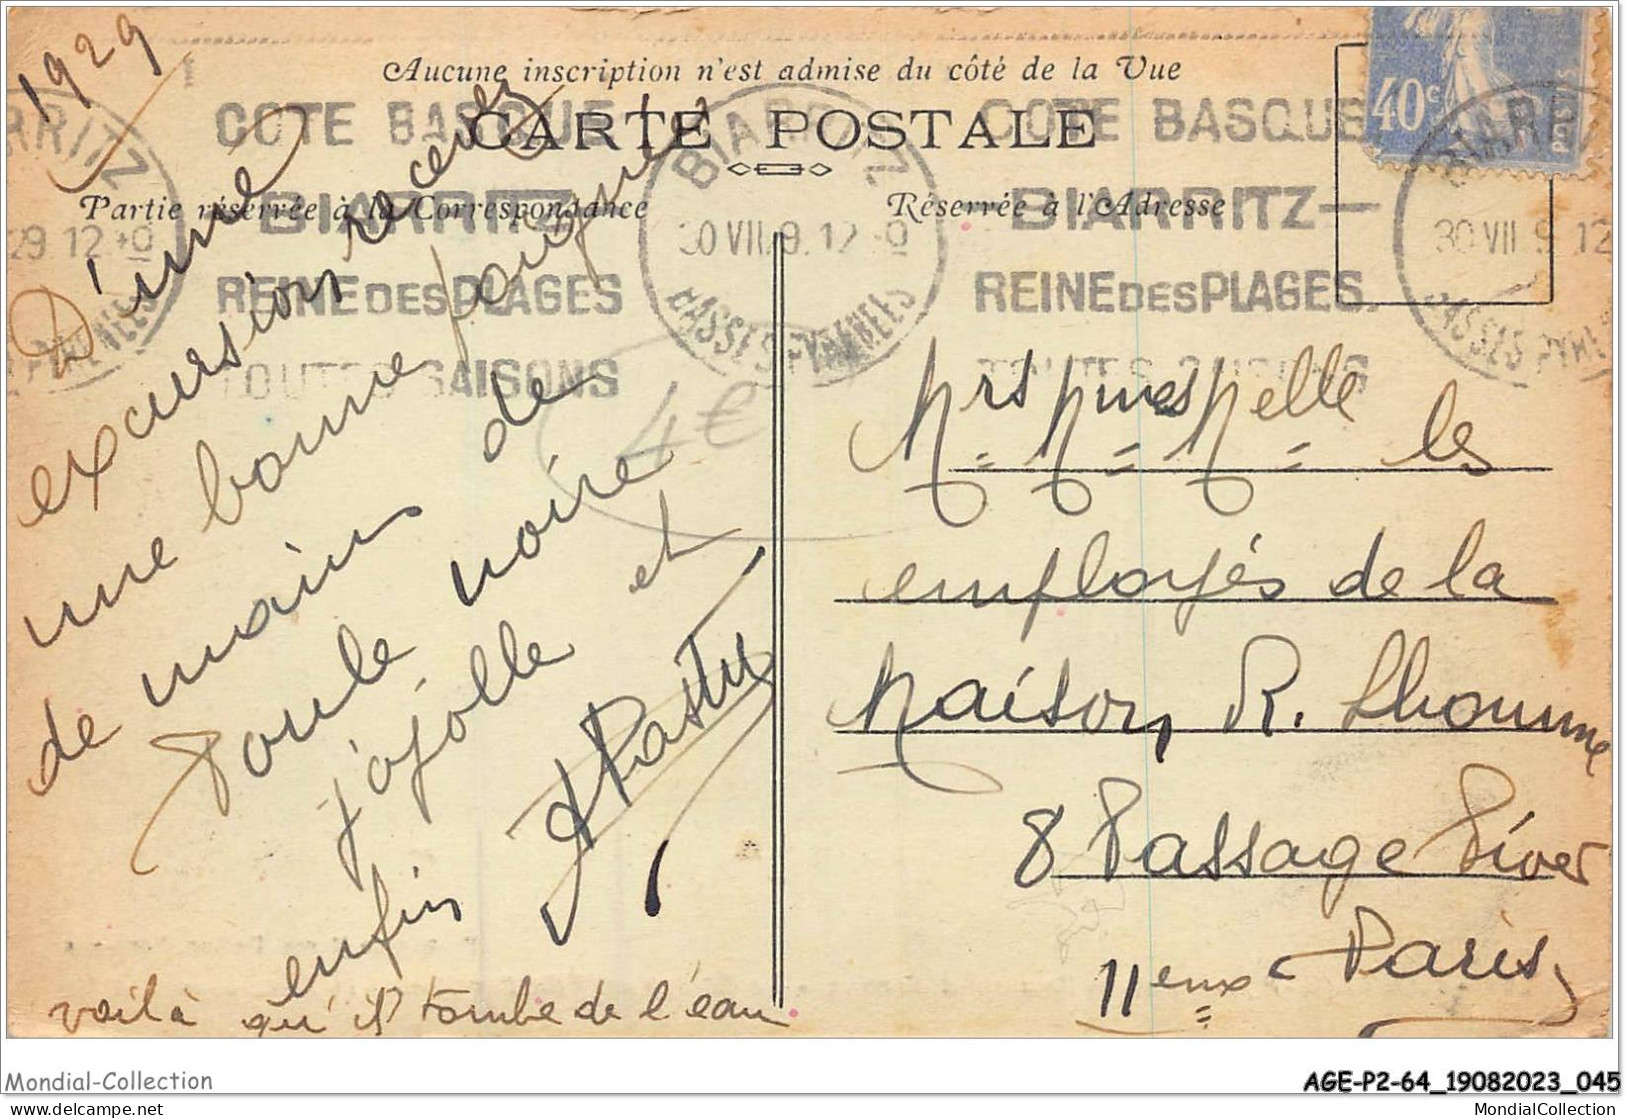 1929
Aucune inscription n'est admise du côté de la Vue
CARTE POSTALE
Partie réservée à la Correspondance
Réservée à l'Adresse
40c
POSTES
COTE BASQUE
BIARRITZ
REINE DES PLAGES
TOUTES SAISONS
BIARRITZ
30 VII 9. 12
BASSES PYRENEES
COTE BASQUE
BIARRITZ —
REINE DES PLAGES.
BIARRITZ
30 VII 9 12
BASSES PYRENEES
RRITZ
29 12
PYRENEES
D'une
excursion
une bonne poignée
de main de
Poule noire
j'ajolle et
enfin
voilà qu'il tombe de l'eau
4€
Mrs Mmes Melle les
employés de la
Maison R. Lhomme
8 Passage Piver
11eme Paris
Mondial-Collection
AGE-P2-64_19082023_045
delcampe.net
MondialCollection